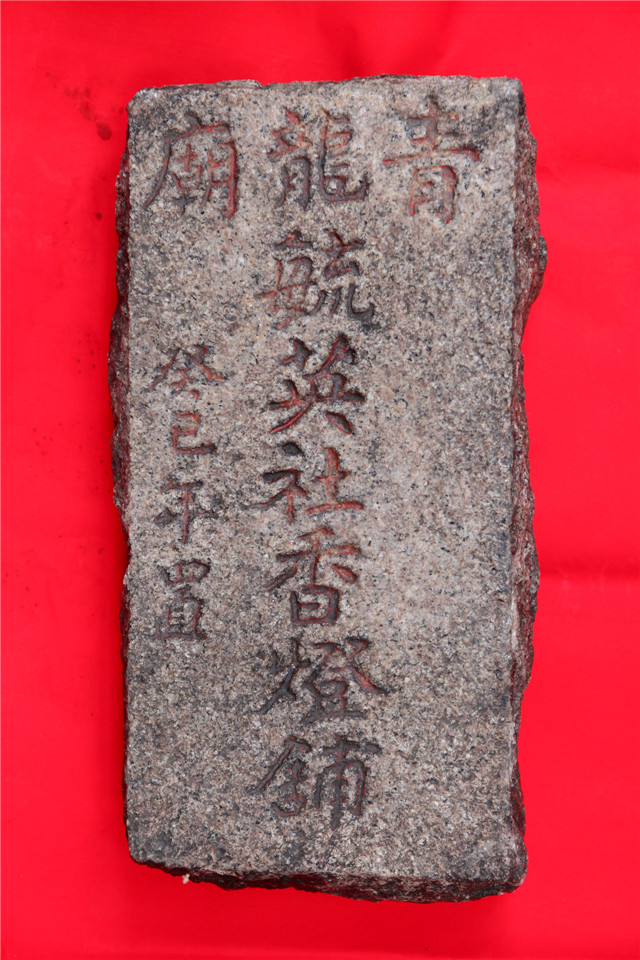 青龍廟
毓英社香燈舖
癸巳年置